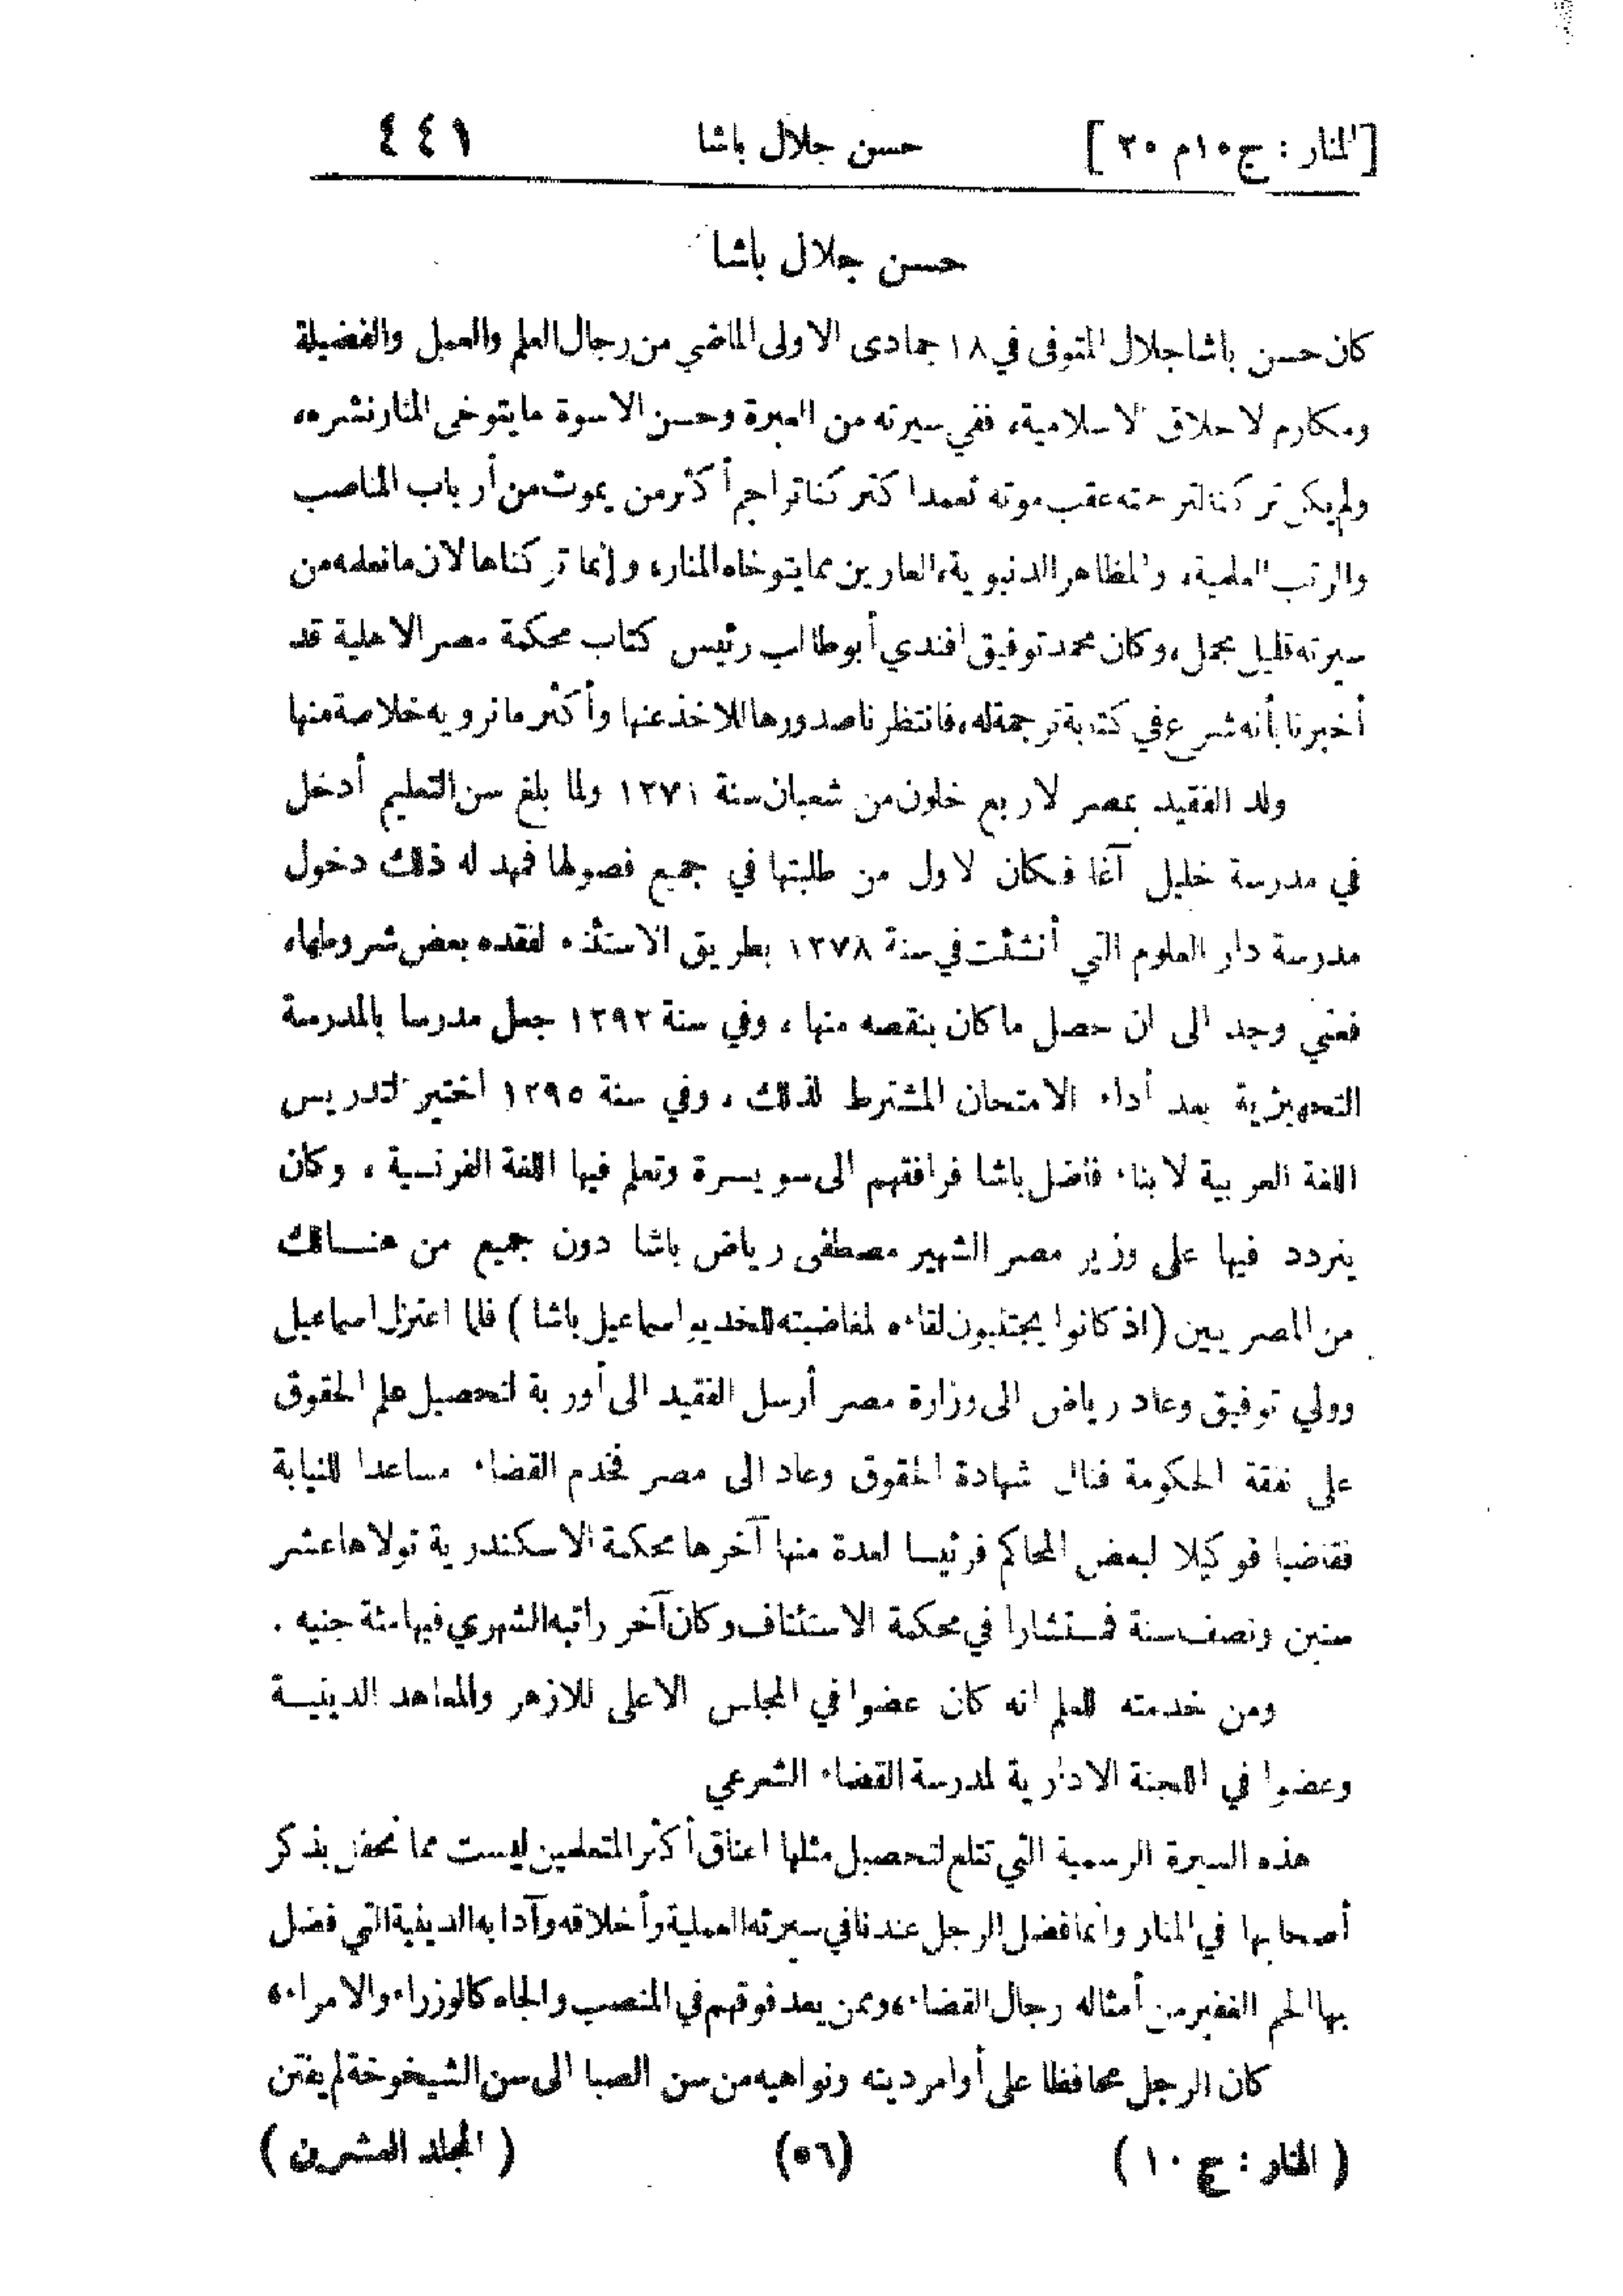 [المنار : ج ١٠ م ٢٠] حسن جلال باشا ٤٤١
حسن جلال باشا
كان حسن باشا جلال المتوفى في ١٨ جمادى الاولى الماضي من رجال العلم والعمل والفضيلة
ومكارم الاخلاق الاسلامية، ففي سيرته من العبرة وحسن الاسوة ما يتوخى المنار نشره،
ولم يكن تركنا لترجمته عقب موته تعمدا كتركنا تراجم أكثر من يموت من أرباب المناصب
والرتب العلمية، والمظاهر الدنيوية، العارين مما يتوخاه المنار، وإنما تركناها لان ما نعلمه من
سيرته قليل مجمل، وكان محمد توفيق افندي أبو طالب رئيس كتاب محكمة مصر الاهلية قد
أخبرنا بأنه شرع في كتابة ترجمة له، فانتظرنا صدورها للاخذ عنها وأكثر ما نرويه خلاصة منها
ولد الفقيد بمصر لاربع خلون من شعبان سنة ١٢٧١ ولما بلغ سن التعليم أدخل
في مدرسة خليل آغا فكان الاول من طلبتها في جميع فصولها فمهد له ذلك دخول
مدرسة دار العلوم التي أنشئت في سنة ١٢٧٨ بطريق الاستثناء لفقده بعض شروطها،
فعني وجد الى ان حصل ما كان ينقصه منها ، وفي سنة ١٢٩٢ جعل مدرسا بالمدرسة
التجهيزية بعد أداء الامتحان المشترط لذلك ، وفي سنة ١٢٩٥ اختير لتدريس
اللغة العربية لابناء فاضل باشا فرافقهم الى سويسرة وتعلم فيها اللغة الفرنسية ، وكان
يتردد فيها على وزير مصر الشهير مصطفى رياض باشا دون جميع من هنالك
من المصريين (اذ كانوا يجتنبون لقاءه لمغاضبته للخديو اسماعيل باشا) فلما اعتزل اسماعيل
وولي توفيق وعاد رياض الى وزارة مصر أرسل الفقيد الى أوربة لتحصيل علم الحقوق
على نفقة الحكومة فنال شهادة الحقوق وعاد الى مصر فخدم القضاء مساعدا للنيابة
فقاضيا فوكيلا لبعض المحاكم فرئيسا لعدة منها آخرها محكمة الاسكندرية تولاها عشر
سنين ونصف سنة فمستشارا في محكمة الاستئناف وكان آخر راتبه الشهري فيها مئة جنيه .
ومن خدمته للعلم انه كان عضوا في المجلس الاعلى للازهر والمعاهد الدينية
وعضوا في اللجنة الادارية لمدرسة القضاء الشرعي
هذه السيرة الرسمية التي تتلع لتحصيل مثلها اعناق أكثر المتعلمين ليست مما نحفل بذكر
أصحابها في المنار وانما فضل الرجل عندنا في سيرته العملية وأخلاقه وآدابه الدينية التي فضل
بها الجم الغفير من أمثاله رجال القضاء، وممن يعد فوقهم في المنصب والجاه كالوزراء والامراء،
كان الرجل محافظا على أوامر دينه ونواهيه من سن الصبا الى سن الشيخوخة لم يفتن
( المنار : ج ١٠ ) (٥٦) ( المجلد العشرون )